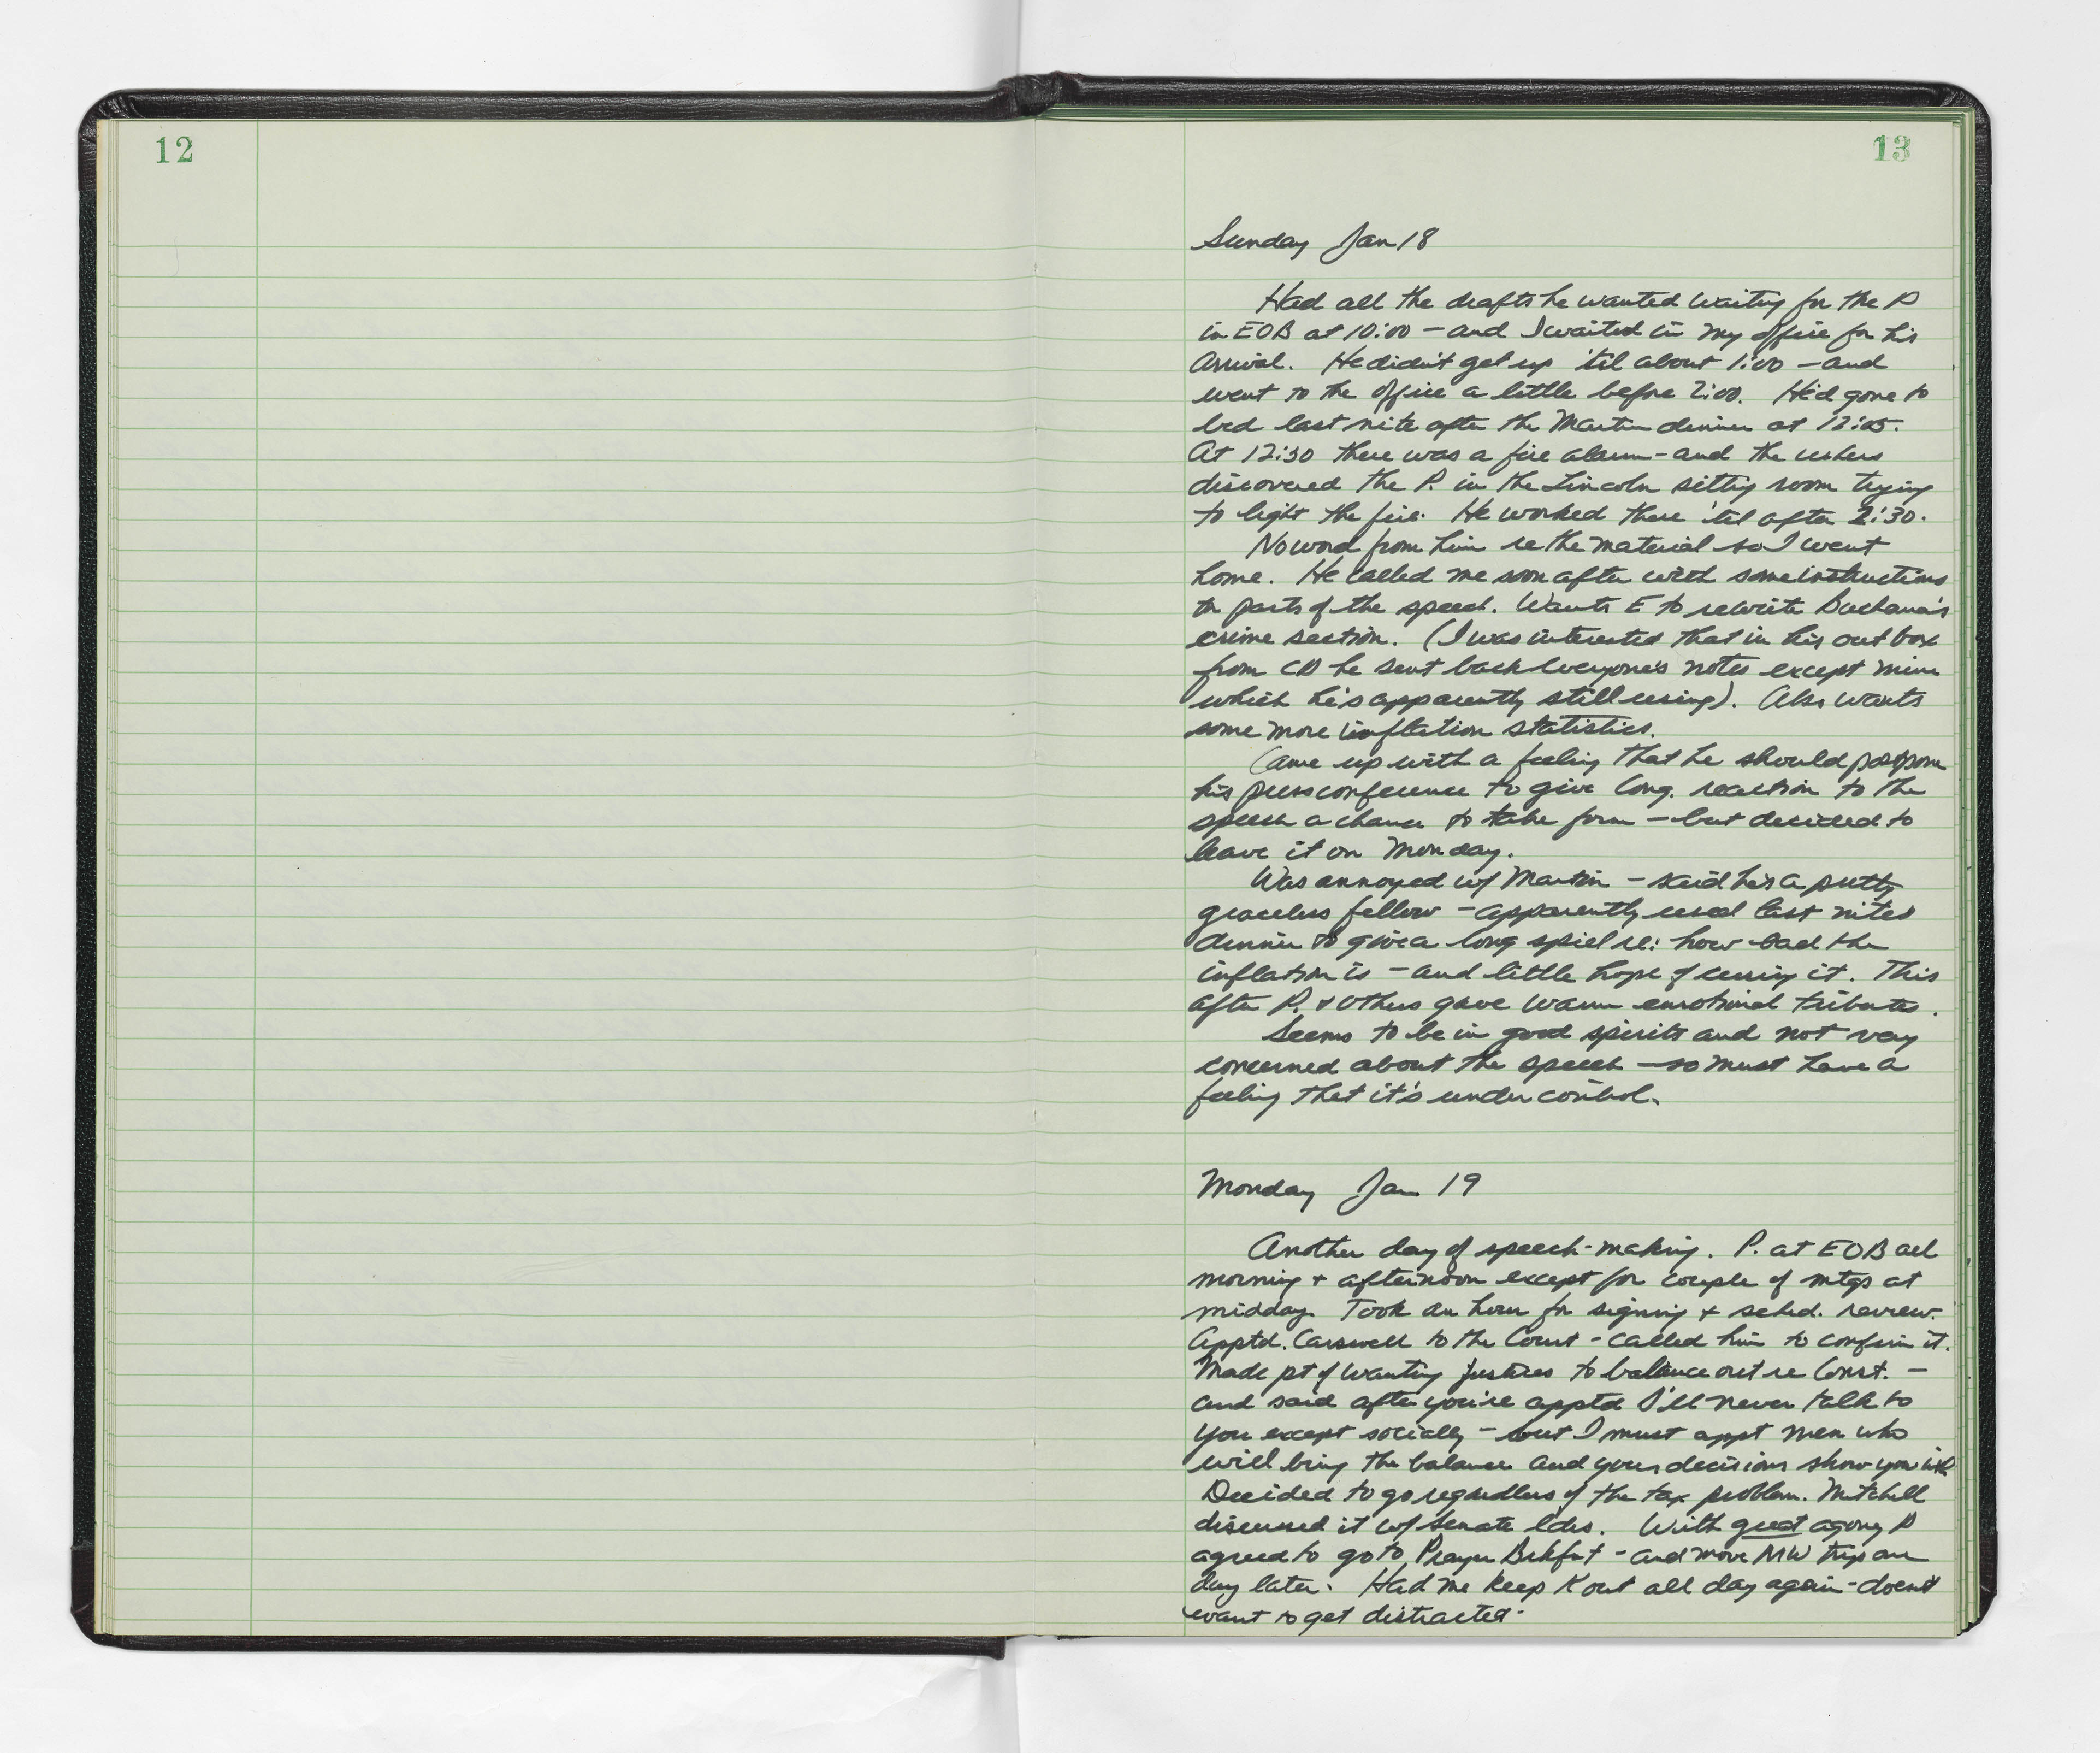 12
13
Sunday Jan 18
Had all the drafts he wanted waiting for the P
in EOB at 10:00 – and I waited in my office for his
arrival. He didn't get up 'til about 1:00 – and
went to the office a little before 2:00. He'd gone to
bed last nite after the Martin dinner at
At 12:30 there was a fire alarm – and the ushers
discovered the P. in the Lincoln sitting room trying
to light the fire. He worked there 'til after 2:30.
No word from him re the material so I went
home. He called me soon after with some instructions
on parts of the speech. Wants E to rewrite Buchanan's
crime section. (I was interested that in his out box
from CD he sent back everyone's notes except mine
which he's apparently still using). Also wants
some more inflation statistics.
Came up with a feeling that he should postpone
his press conference to give Cong. reaction to the
speech a chance to take form – but decided to
leave it on Monday.
Was annoyed w/ Martin – said he's a pretty
graceless fellow – apparently used last nites
dinner to give a long spiel re: how bad the
inflation is – and little hope of curing it. This
after P. & others gave warm emotional tributes.
Seems to be in good spirits and not very
concerned about the speech – so must have a
feeling that it's under control.
Monday Jan 19
Another day of speech-making. P. at EOB all
morning + afternoon except for couple of mtgs at
midday. Took an hour for signing + sched. review.
Apptd. Carswell to the Court – called him to confirm it.
Made pt of wanting justices to balance out re Const. –
and said after you're apptd I'll never talk to
you except socially – but I must appt men who
will bring the balance and your decisions show you will
Decided to go regardless of the tax problem. Mitchell
discussed it w/ Senate ldrs. With great agony P
agreed to go to Prayer Brkfst – and move MW trip one
day later. Had me keep K out all day again – doesn't
want to get distracted.